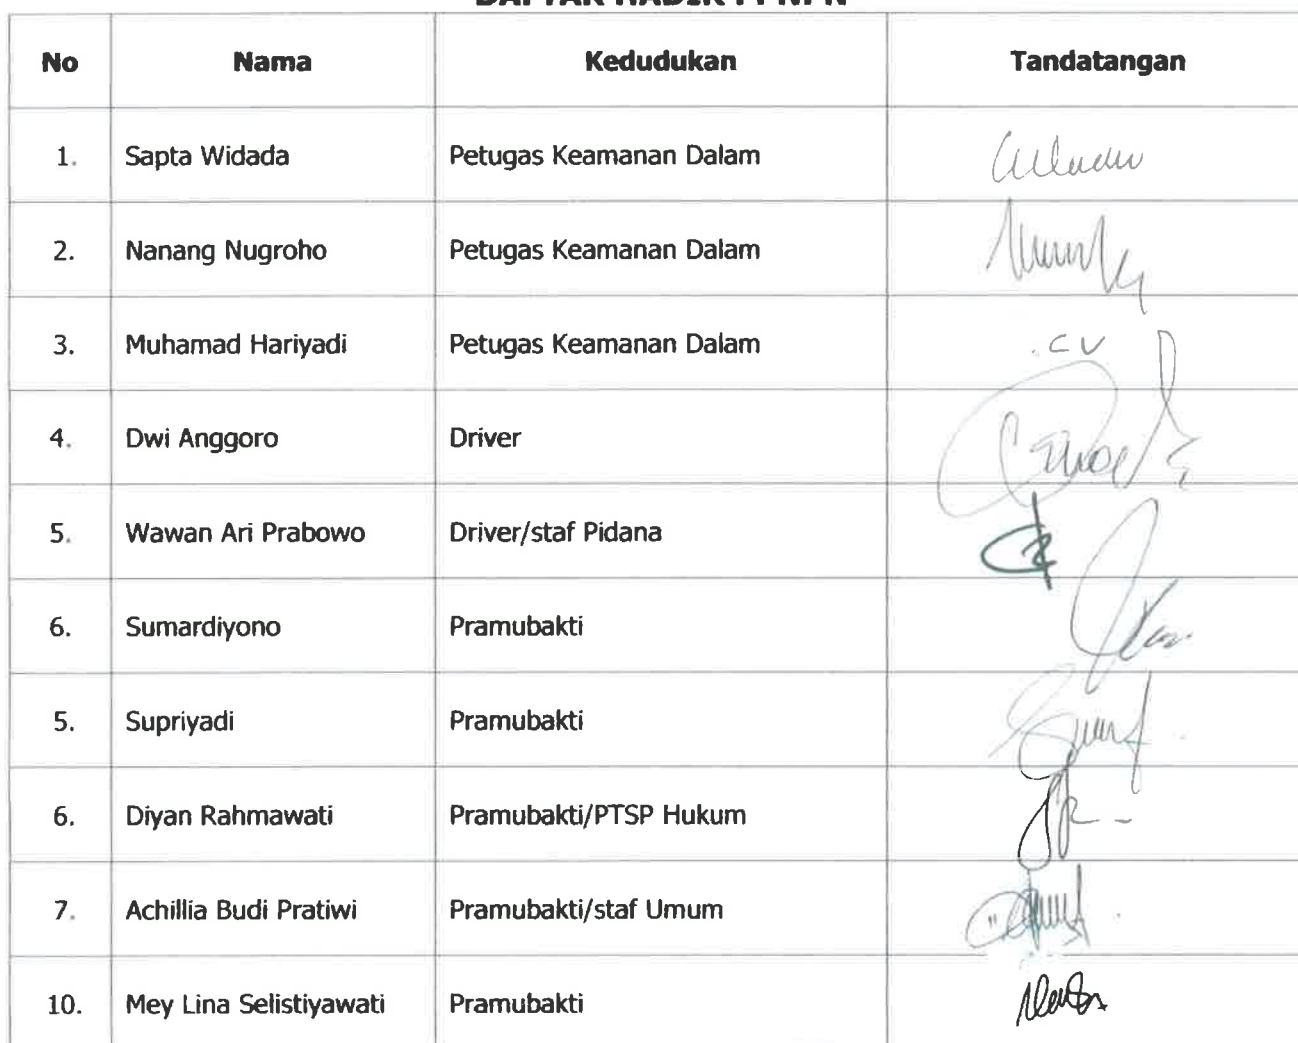 DAFTAR HADIR PPNPN
No Nama Kedudukan Tandatangan
1. Sapta Widada Petugas Keamanan Dalam
2. Nanang Nugroho Petugas Keamanan Dalam
3. Muhamad Hariyadi Petugas Keamanan Dalam
4. Dwi Anggoro Driver
5. Wawan Ari Prabowo Driver/staf Pidana
6. Sumardiyono Pramubakti
5. Supriyadi Pramubakti
6. Diyan Rahmawati Pramubakti/PTSP Hukum
7. Achillia Budi Pratiwi Pramubakti/staf Umum
10. Mey Lina Selistiyawati Pramubakti